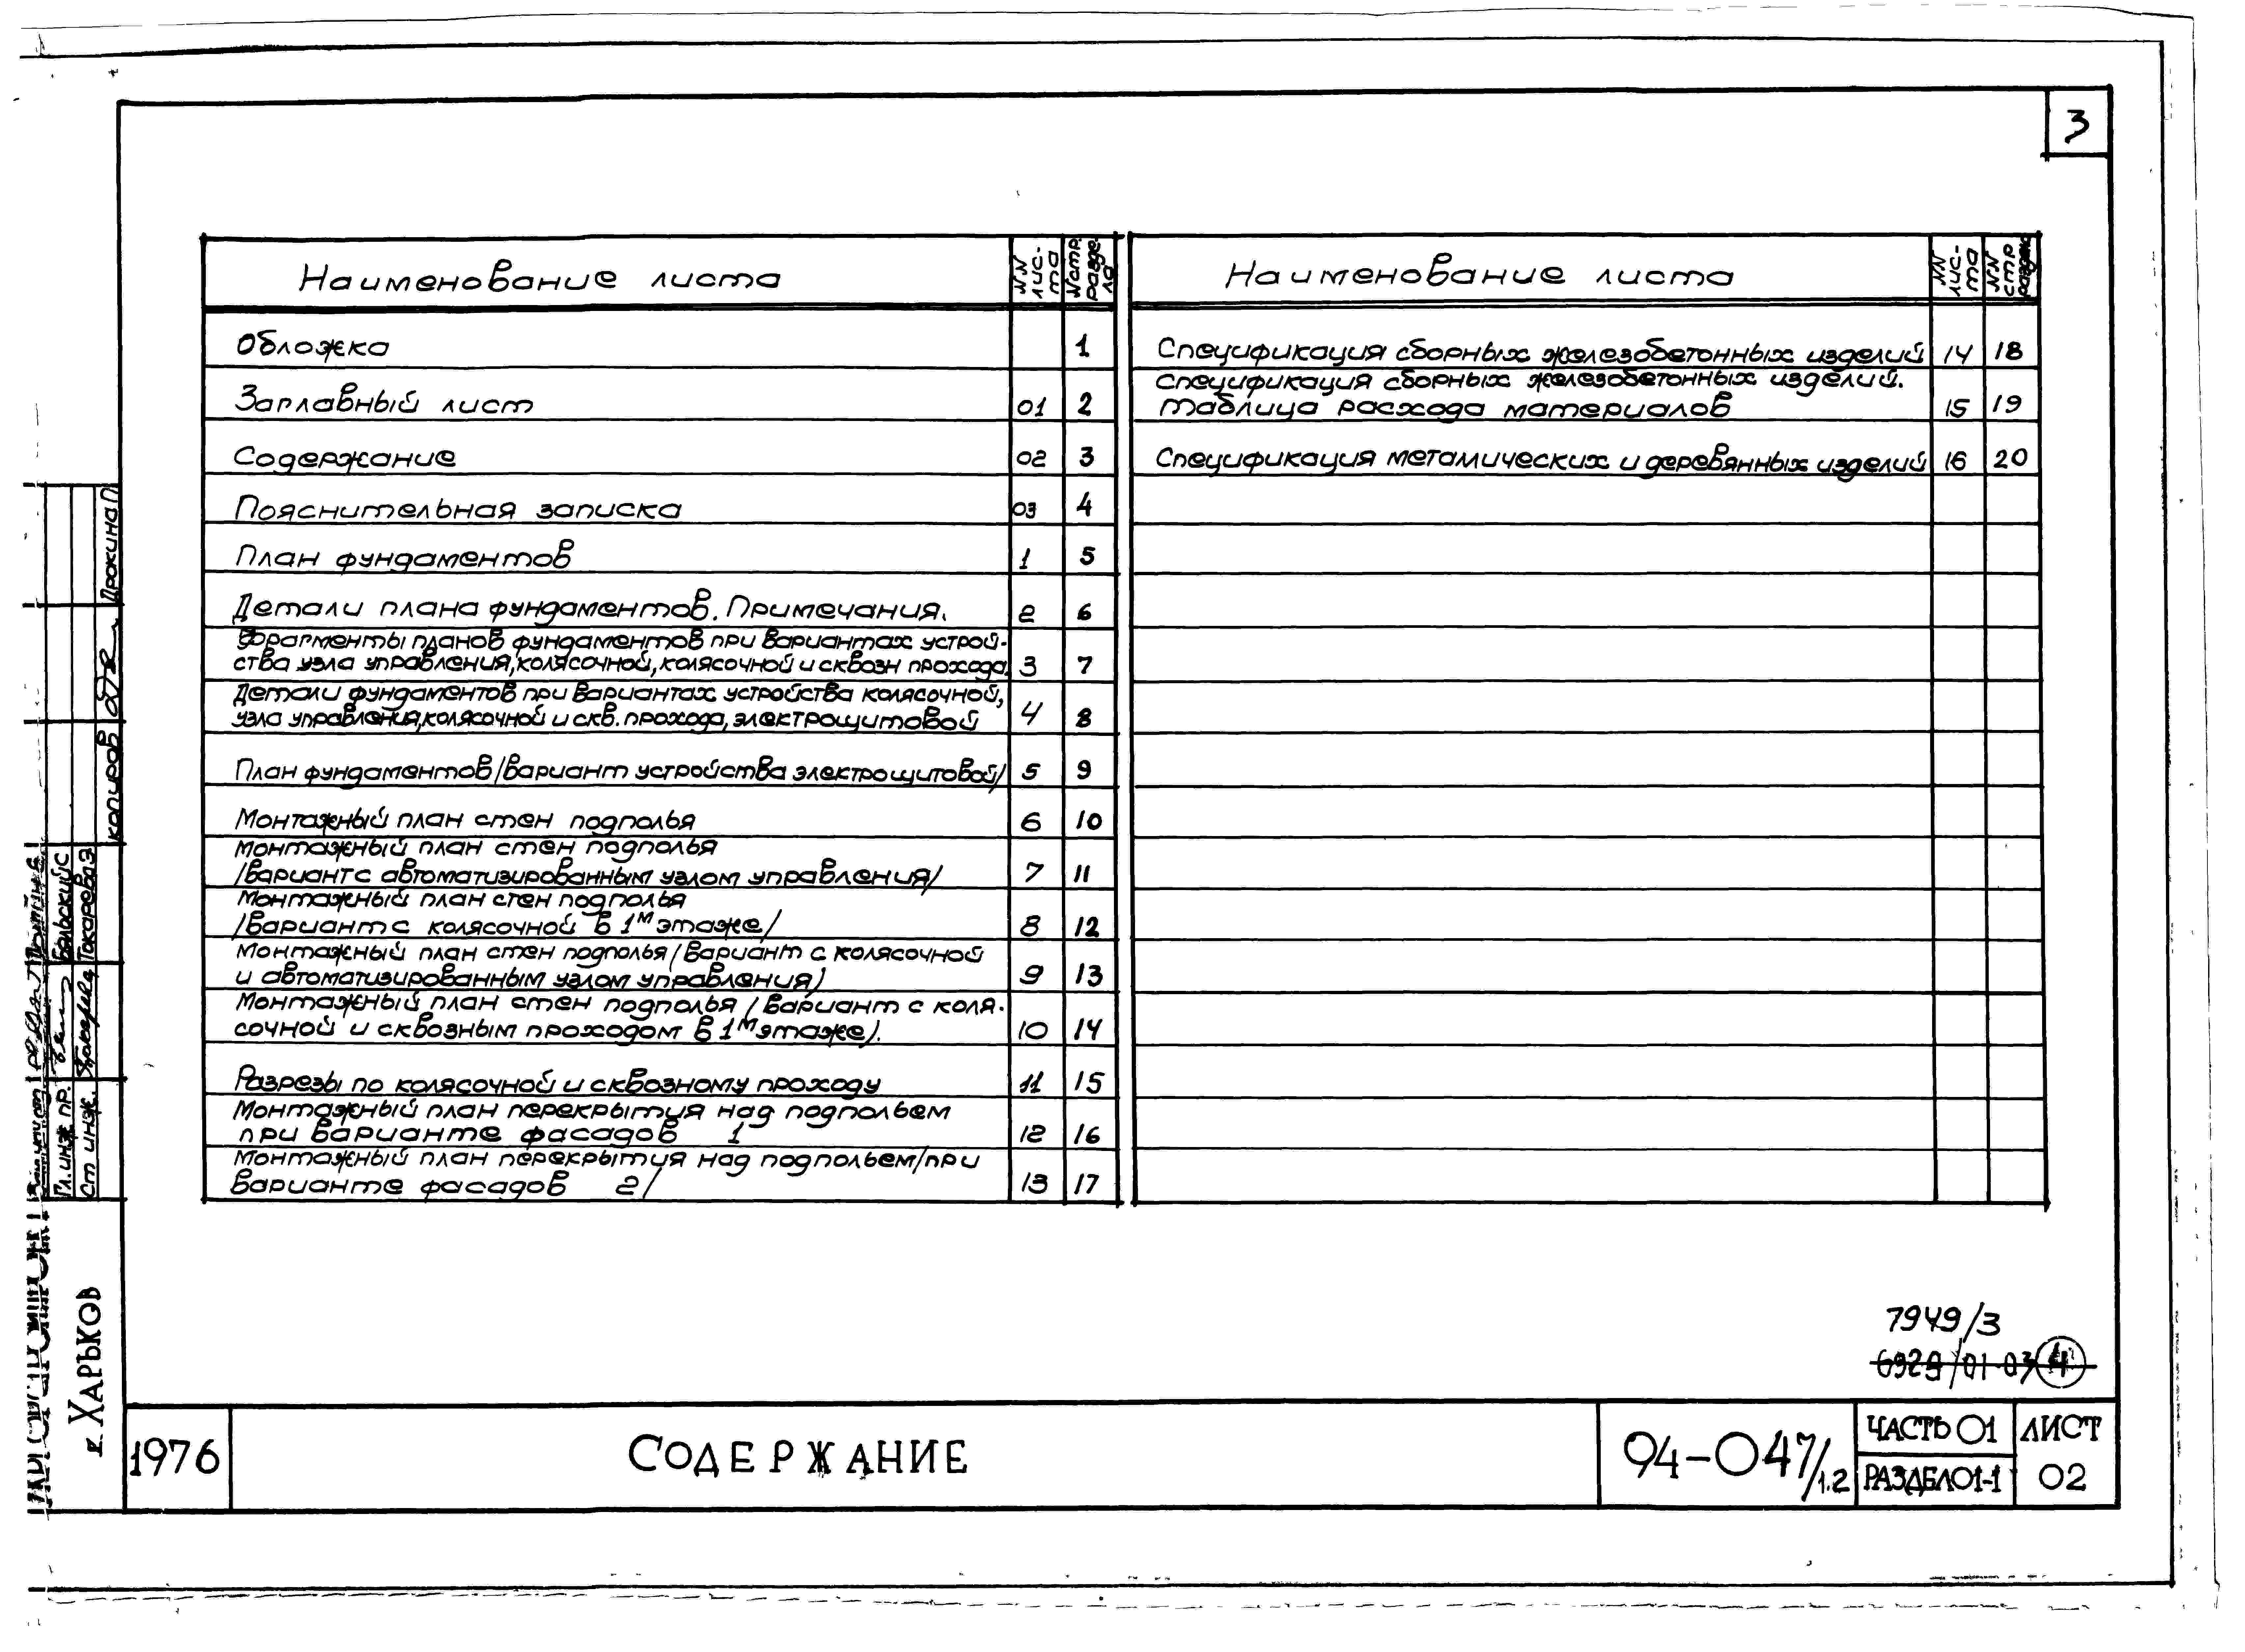 3
Наименование листа
NN лис-та
N стр. разде-ла
Обложка 1
Заглавный лист 01 2
Содержание 02 3
Пояснительная записка 03 4
План фундаментов 1 5
Детали плана фундаментов. Примечания. 2 6
Фрагменты планов фундаментов при вариантах устрой-
ства узла управления, колясочной, колясочной и сквозн прохода. 3 7
Детали фундаментов при вариантах устройства колясочной,
узла управления, колясочной и скв. прохода, электрощитовой 4 8
План фундаментов /вариант устройства электрощитовой/ 5 9
Монтажный план стен подполья 6 10
Монтажный план стен подполья
/вариант с автоматизированным узлом управления/ 7 11
Монтажный план стен подполья
/вариант с колясочной в 1м этаже/ 8 12
Монтажный план стен подполья /вариант с колясочной
и автоматизированным узлом управления) 9 13
Монтажный план стен подполья /вариант с коля-
сочной и сквозным проходом в 1м этаже). 10 14
Разрезы по колясочной и сквозному проходу 11 15
Монтажный план перекрытия над подпольем
при варианте фасадов 1 12 16
Монтажный план перекрытия над подпольем /при
варианте фасадов 2/ 13 17
Наименование листа
NN лис-та
NN стр раздела
Спецификация сборных железобетонных изделий 14 18
Спецификация сборных железобетонных изделий.
таблица расхода материалов 15 19
Спецификация метамических и деревянных изделий 16 20
Дрокина П
копиров
Бельский С
Токарева З
Гл. инж пр.
Ст инж.
г. Харьков
7949/3
6929/01-03 4
1976
Содержание
94-047/1.2
Часть 01
Раздел 01-1
Лист
02